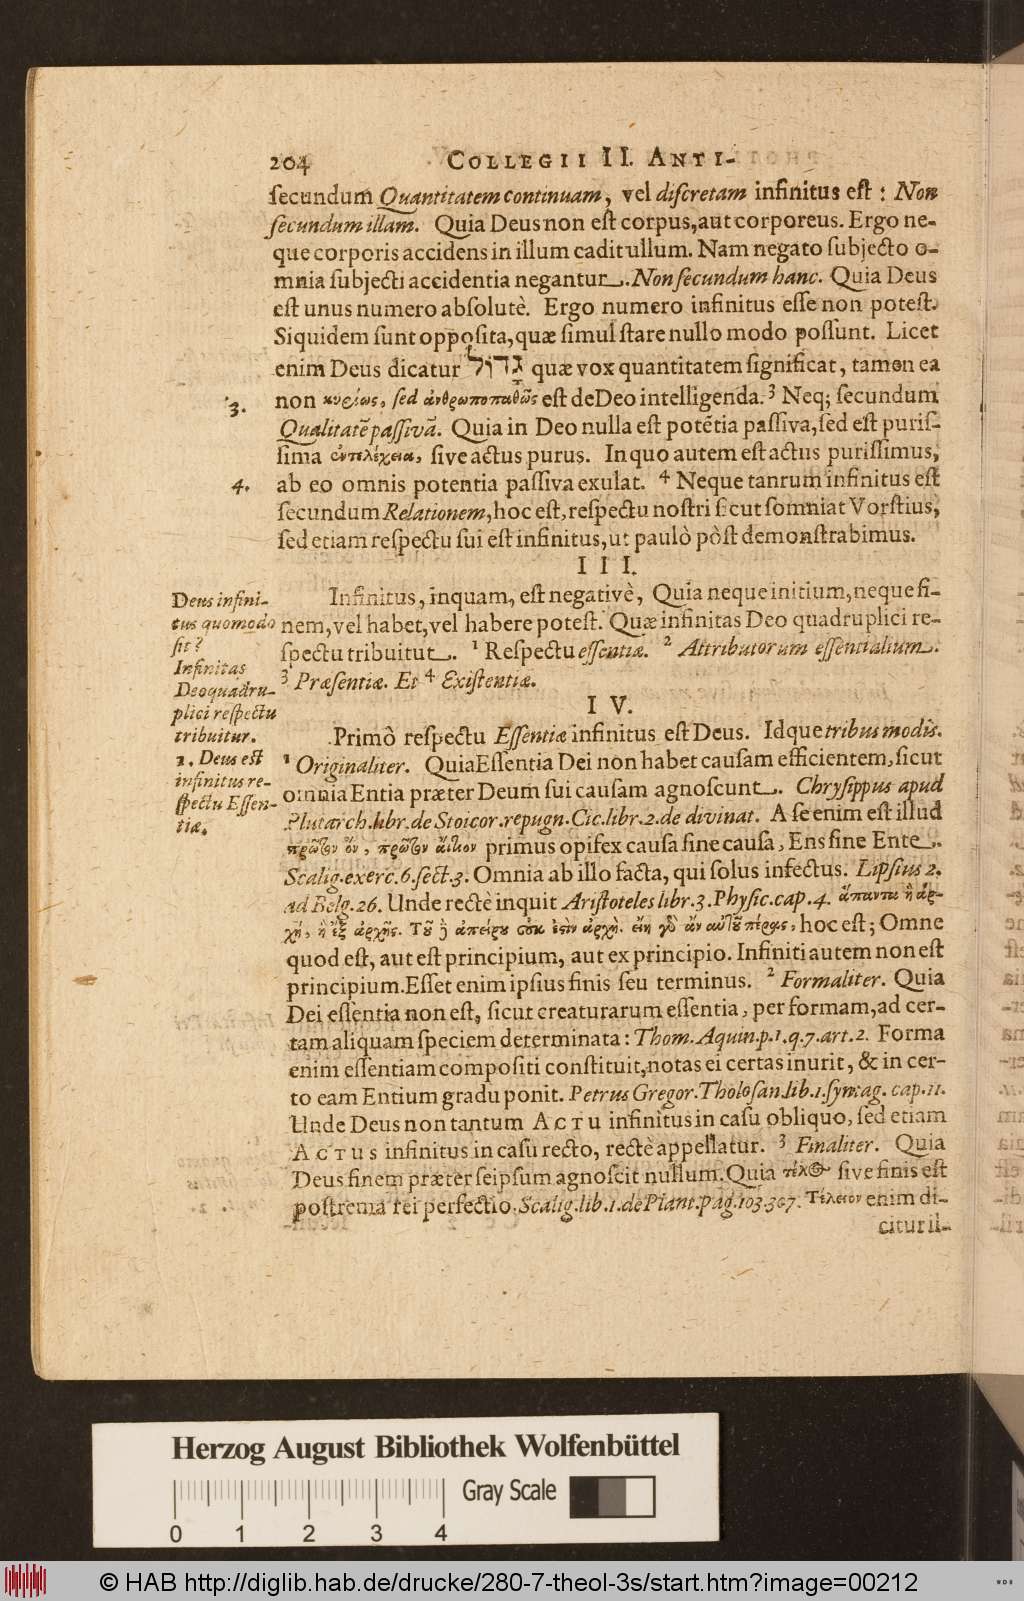 204 COLLEGII II. ANTI-
secundum Quantitatem continuam, vel discretam infinitus est : Non
secundum illam. Quia Deus non est corpus, aut corporeus. Ergo ne-
que corporis accidens in illum cadit ullum. Nam negato subjecto o-
mnia subjecti accidentia negantur. Non secundum hanc. Quia Deus
est unus numero absolutè. Ergo numero infinitus esse non potest.
Siquidem sunt opposita, quæ simul stare nullo modo possunt. Licet
enim Deus dicatur גָדוֹל quæ vox quantitatem significat, tamen ea
3.
non κυρίως, sed ἀνθρωποπαθῶς est de Deo intelligenda. 3 Neq; secundum
Qualitatẽ passivã. Quia in Deo nulla est potẽtia passiva, sed est puris-
sima ἐντελέχεια, sive actus purus. In quo autem est actus purissimus,
4.
ab eo omnis potentia passiva exulat. 4 Neque tantum infinitus est
secundum Relationem, hoc est, respectu nostri sicut somniat Vorstius,
sed etiam respectu sui est infinitus, ut paulò pòst demonstrabimus.
III.
Deus infini-
tus quomodo
sit?
Infinitas
Deo quadru-
plici respectu
tribuitur.
Infinitus, inquam, est negativè, Quia neque initium, neque fi-
nem, vel habet, vel habere potest. Quæ infinitas Deo quadruplici re-
spectu tribuitut. 1 Respectu essentiæ. 2 Attributorum essentialium.
3 Præsentiæ. Et 4 Existentiæ.
IV.
1. Deus est
infinitus re-
spectu Essen-
tiæ.
Primò respectu Essentiæ infinitus est Deus. Idque tribus modis.
1 Originaliter. Quia Essentia Dei non habet causam efficientem, sicut
omnia Entia præter Deum sui causam agnoscunt. Chrysippus apud
Plutarch. libr. de Stoicor. repugn. Cic. libr. 2. de divinat. A se enim est illud
πρῶτον ὂν, πρῶτον αἴτιον primus opifex causa sine causa, Ens sine Ente.
Scalig. exerc. 6. sect. 3. Omnia ab illo facta, qui solus infectus. Lipsius 2.
ad Belg. 26. Unde rectè inquit Aristoteles libr. 3. Physic. cap. 4. ἅπαντα ἢ ἀρ-
χὴ, ἢ ἐξ ἀρχῆς. Τοῦ δὲ ἀπείρου οὐκ ἐστὶν ἀρχὴ. εἴη γὸ ἂν αὐτοῦ πέρας, hoc est; Omne
quod est, aut est principium, aut ex principio. Infiniti autem non est
principium. Esset enim ipsius finis seu terminus. 2 Formaliter. Quia
Dei essentia non est, sicut creaturarum essentia, per formam, ad cer-
tam aliquam speciem determinata: Thom. Aquin. p. 1. q. 7. art. 2. Forma
enim essentiam compositi constituit, notas ei certas inurit, & in cer-
to eam Entium gradu ponit. Petrus Gregor. Tholosan. lib. 1. syntag. cap. 11.
Unde Deus non tantum ACTU infinitus in casu obliquo, sed etiam
ACTUS infinitus in casu recto, rectè appellatur. 3 Finaliter. Quia
Deus finem præter seipsum agnoscit nullum. Quia τέλος sive finis est
postrema rei perfectio. Scalig. lib. 1. de Plant. pag. 103. 307. Τέλειον enim di-
citur il-
Herzog August Bibliothek Wolfenbüttel
Gray Scale
0 1 2 3 4
© HAB http://diglib.hab.de/drucke/280-7-theol-3s/start.htm?image=00212